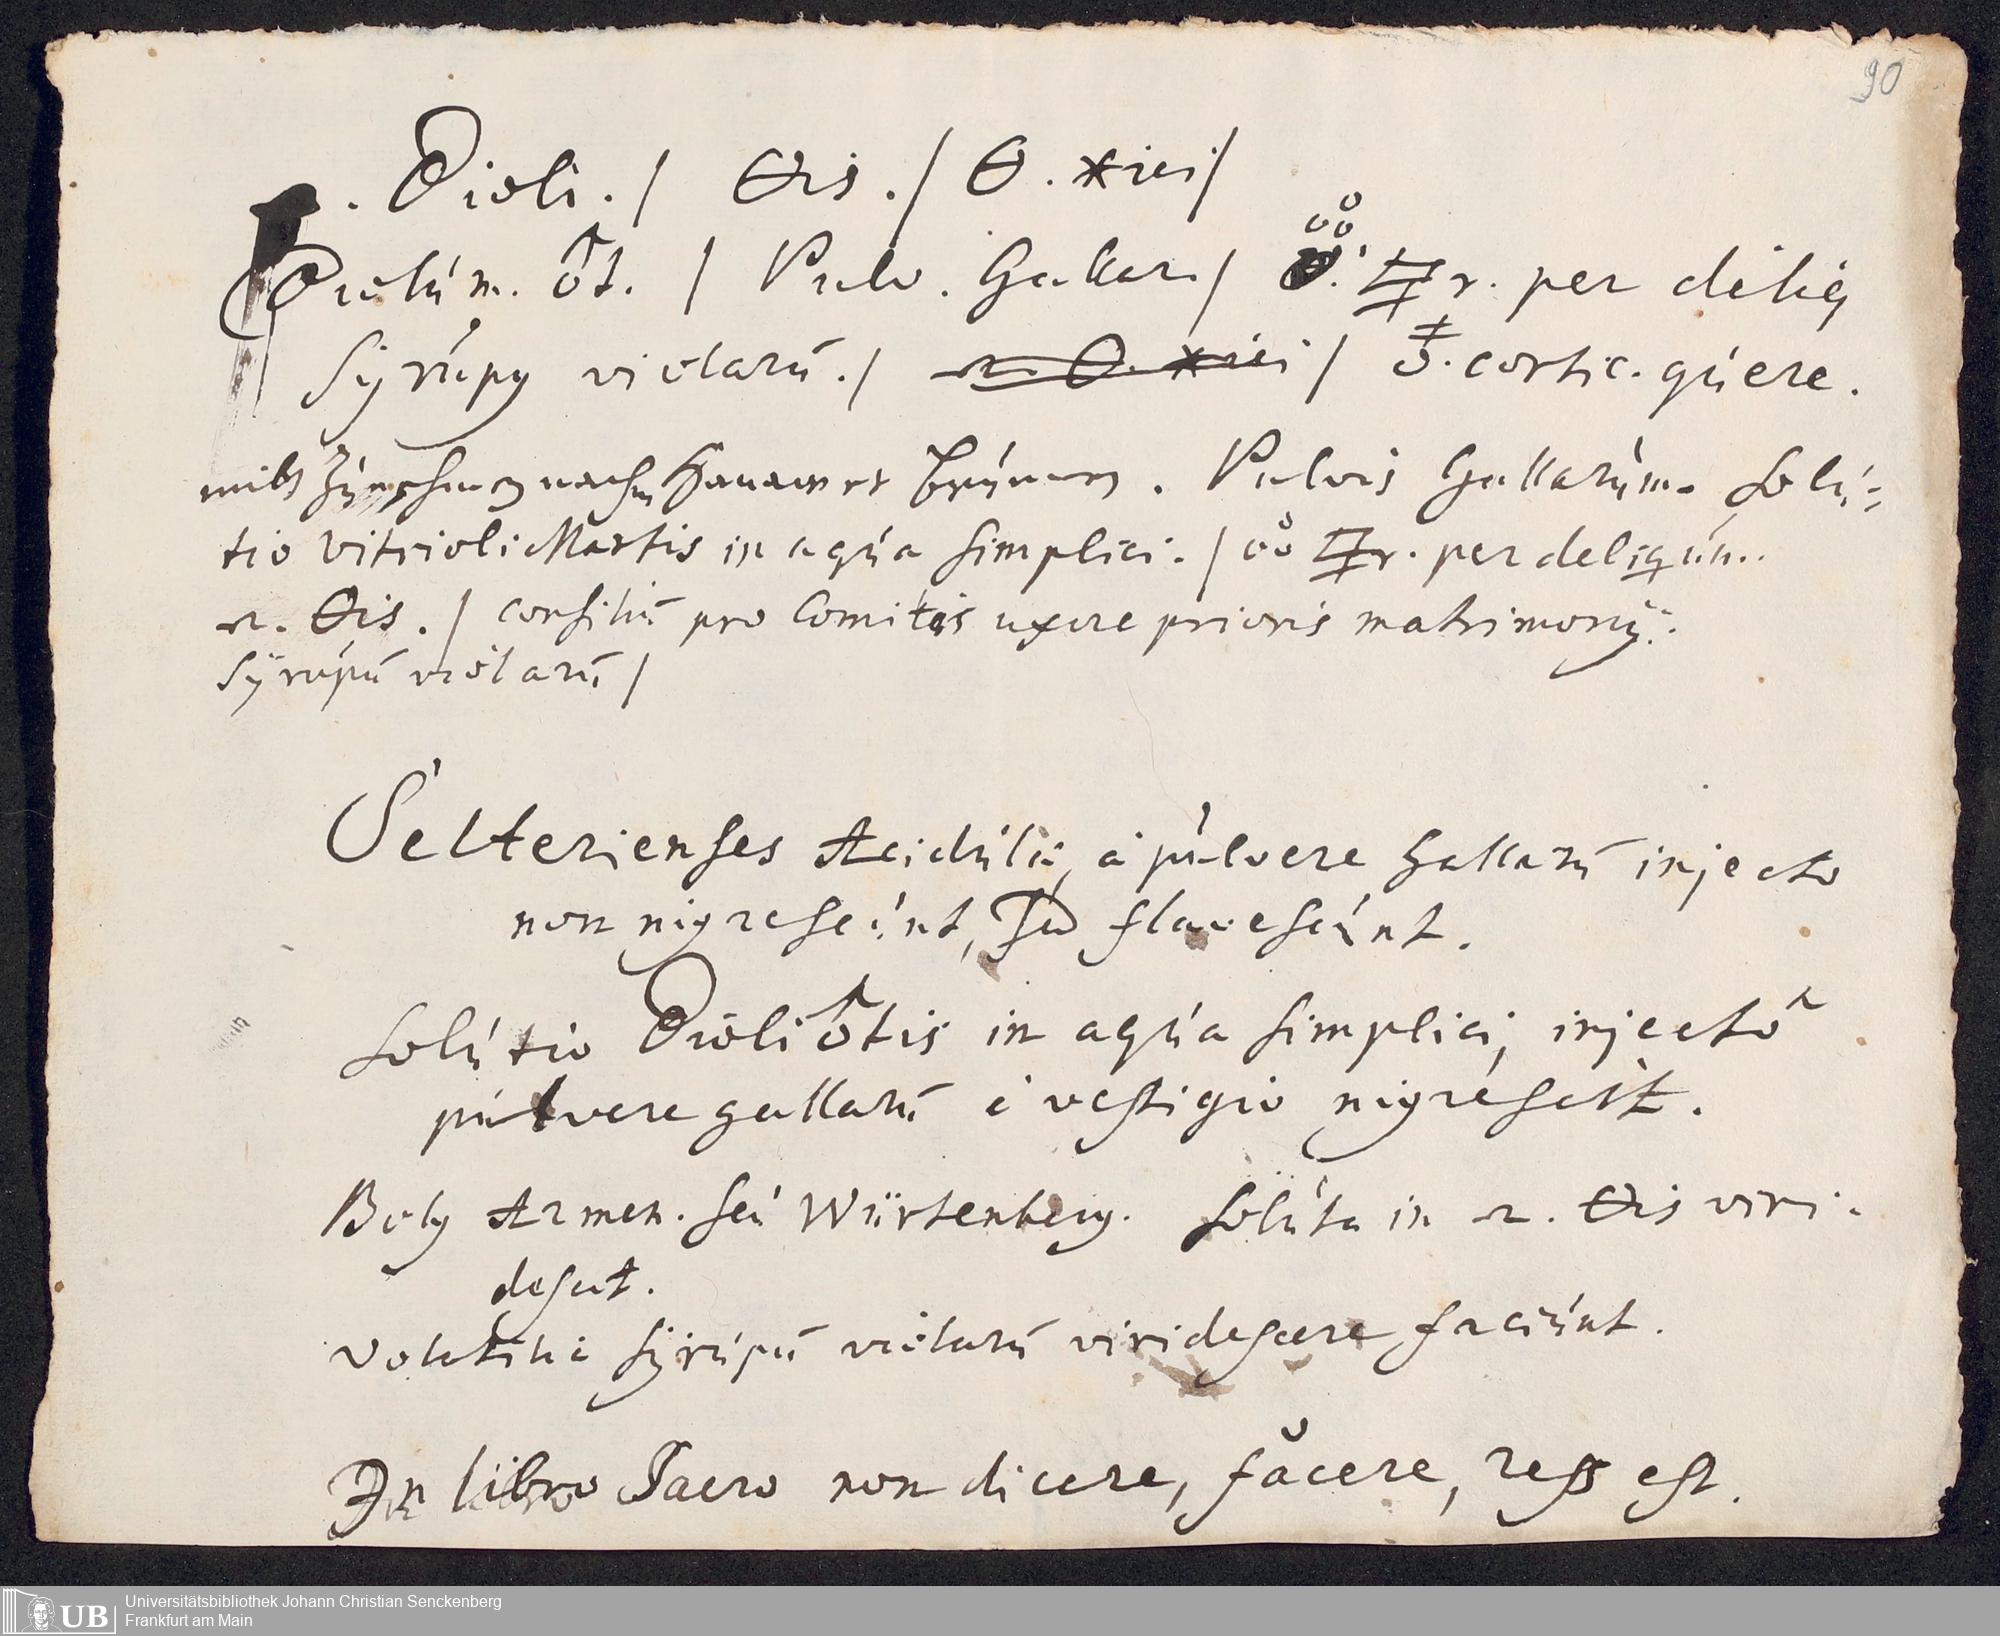 90
. 🜖ioli. / 🜔ris. / 🜔. ✶iaci /
🜖riolúm. ♂t. / Pulv. Gallar. / ░. 🜿r. per deliq
Syrúpq violarū. / 🜔. ✶iaci / ♁. cortic. qúere.
Hanauer Brúnnen. Pulvis Gallarúm. Solú=
tio Vitrioli Martis in aqúa simplici. / % 🜿r. per deliqúū..
🜔ris. / consiliū pro Comitis uxore prioris matrimonij.
Syrúpū violarū /
Selterienses Acidúlæ, à púlvere Gallarū injecto
non nigrescúnt, sed flavescúnt.
Solútio 🜖rioli ♂tis in aqúa simplici, injectô
púlvere gallarū è vestigio nigréscit.
Boly Armen. seú Würtenberg. solúta in 🜔ris viri-
descut.
Volatilia Syrúpū violarū viridescere faciúnt.
In libro Sacro non dicere, făcere, ress est.
Universitätsbibliothek Johann Christian Senckenberg
Frankfurt am Main
UB